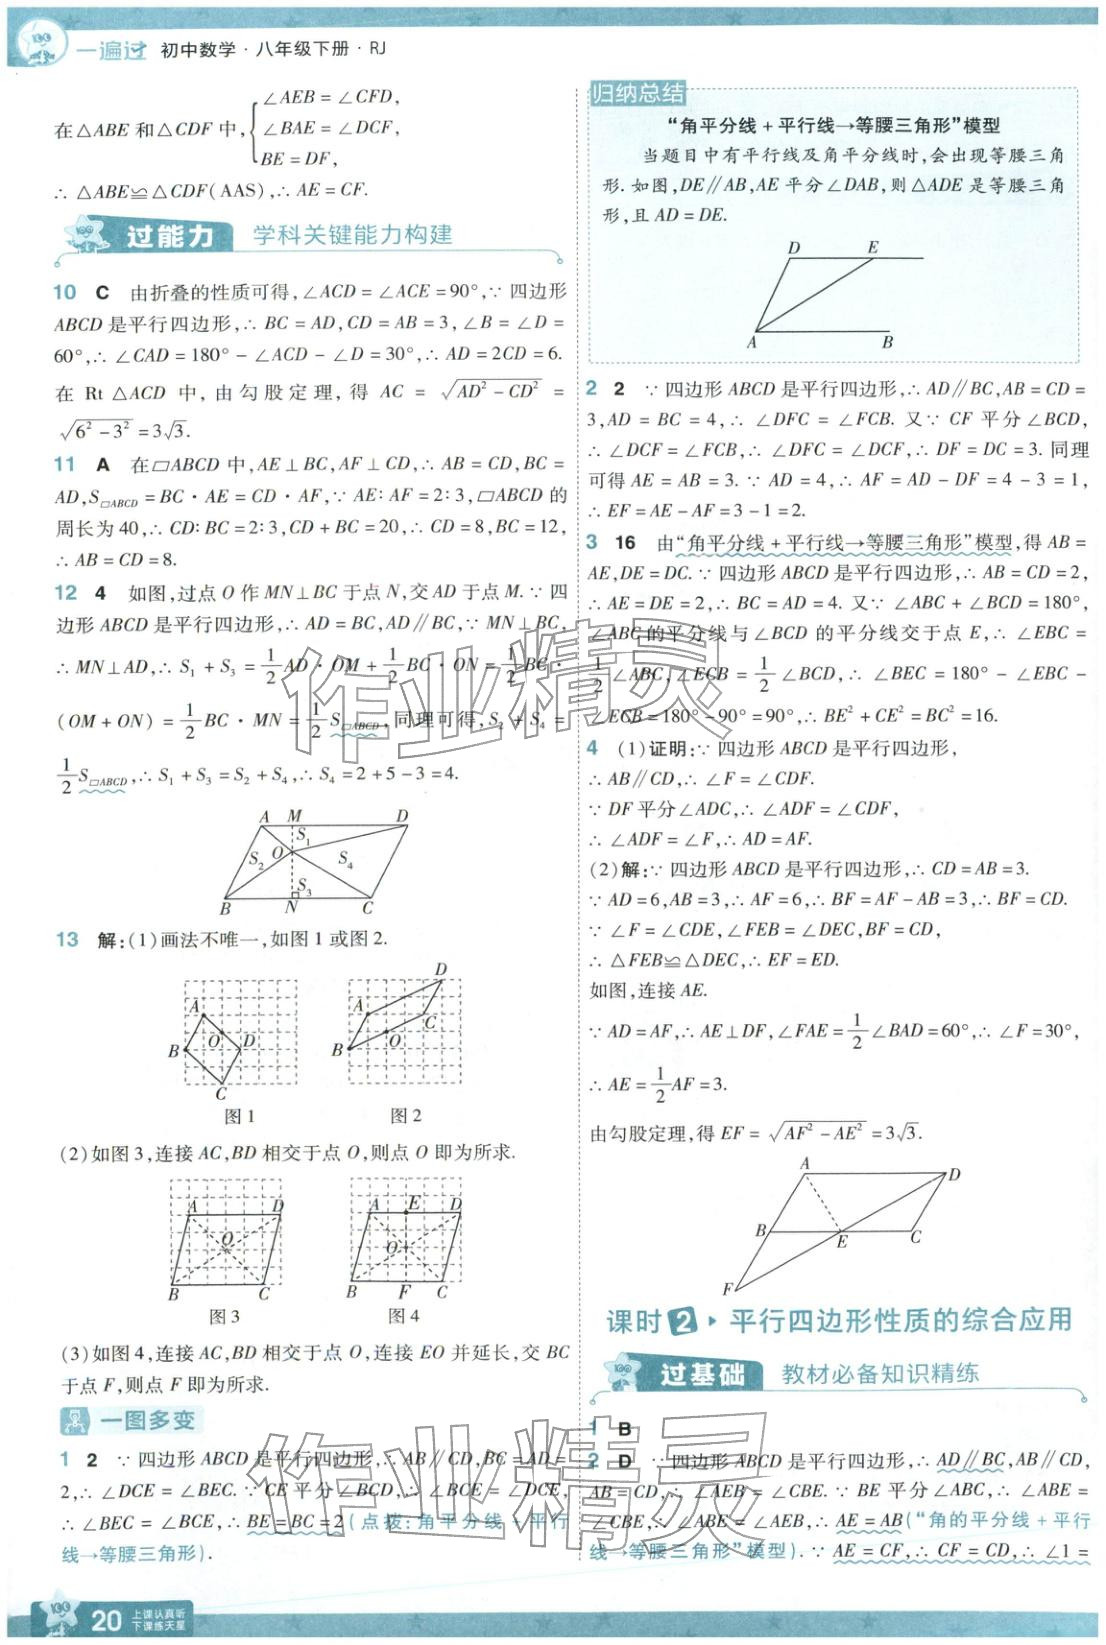 一遍过 初中数学·八年级下册·RJ
在△ABE 和△CDF 中,{∠AEB = ∠CFD,
∠BAE = ∠DCF,
BE = DF,
∴ △ABE≌△CDF(AAS),∴ AE = CF.
过能力 学科关键能力构建
10 C 由折叠的性质可得,∠ACD = ∠ACE = 90°,∵ 四边形
ABCD 是平行四边形,∴ BC = AD,CD = AB = 3,∠B = ∠D =
60°,∴ ∠CAD = 180° − ∠ACD − ∠D = 30°,∴ AD = 2CD = 6.
在 Rt △ACD 中,由勾股定理,得 AC = √(AD² − CD²) =
√(6² − 3²) = 3√3.
11 A 在▱ABCD 中,AE⊥BC,AF⊥CD,∴ AB = CD,BC =
AD,S▱ABCD = BC·AE = CD·AF,∵ AE∶AF = 2∶3,▱ABCD 的
周长为 40,∴ CD∶BC = 2∶3,CD + BC = 20,∴ CD = 8,BC = 12,
∴ AB = CD = 8.
12 4 如图,过点 O 作 MN⊥BC 于点 N,交 AD 于点 M. ∵ 四
边形 ABCD 是平行四边形,∴ AD = BC,AD∥BC,∵ MN⊥BC,
∴ MN⊥AD,∴ S₁ + S₃ = 1/2 AD·OM + 1/2 BC·ON = 1/2 BC·
(OM + ON) = 1/2 BC·MN = 1/2 S▱ABCD,同理可得,S₂ + S₄ =
1/2 S▱ABCD,∴ S₁ + S₃ = S₂ + S₄,∴ S₄ = 2 + 5 − 3 = 4.
A M D
S₁
S₂ O S₄
S₃
B N C
13 解:(1)画法不唯一,如图 1 或图 2.
A
B O D
C
图 1
D
A
C
B O
图 2
(2)如图 3,连接 AC,BD 相交于点 O,则点 O 即为所求.
A D
O
B C
图 3
A E D
O
B F C
图 4
(3)如图 4,连接 AC,BD 相交于点 O,连接 EO 并延长,交 BC
于点 F,则点 F 即为所求.
一图多变
1 2 ∵ 四边形 ABCD 是平行四边形,∴ AB∥CD,BC = AD =
2,∴ ∠DCE = ∠BEC. ∵ CE 平分∠BCD,∴ ∠BCE = ∠DCE,
∴ ∠BEC = ∠BCE,∴ BE = BC = 2(点拨:角平分线 + 平行
线→等腰三角形).
归纳总结
“角平分线 + 平行线→等腰三角形”模型
当题目中有平行线及角平分线时,会出现等腰三角
形. 如图,DE∥AB,AE 平分∠DAB,则△ADE 是等腰三角
形,且 AD = DE.
D E
A B
2 2 ∵ 四边形 ABCD 是平行四边形,∴ AD∥BC,AB = CD =
3,AD = BC = 4,∴ ∠DFC = ∠FCB. 又∵ CF 平分∠BCD,
∴ ∠DCF = ∠FCB,∴ ∠DFC = ∠DCF,∴ DF = DC = 3. 同理
可得 AE = AB = 3. ∵ AD = 4,∴ AF = AD − DF = 4 − 3 = 1,
∴ EF = AE − AF = 3 − 1 = 2.
3 16 由“角平分线 + 平行线→等腰三角形”模型,得 AB =
AE,DE = DC. ∵ 四边形 ABCD 是平行四边形,∴ AB = CD = 2,
∴ AE = DE = 2,∴ BC = AD = 4. 又∵ ∠ABC + ∠BCD = 180°,
∠ABC 的平分线与∠BCD 的平分线交于点 E,∴ ∠EBC =
1/2 ∠ABC,∠ECB = 1/2 ∠BCD,∴ ∠BEC = 180° − ∠EBC −
∠ECB = 180° − 90° = 90°,∴ BE² + CE² = BC² = 16.
4 (1)证明:∵ 四边形 ABCD 是平行四边形,
∴ AB∥CD,∴ ∠F = ∠CDF.
∵ DF 平分∠ADC,∴ ∠ADF = ∠CDF,
∴ ∠ADF = ∠F,∴ AD = AF.
(2)解:∵ 四边形 ABCD 是平行四边形,∴ CD = AB = 3.
∵ AD = 6,AB = 3,∴ AF = 6,∴ BF = AF − AB = 3,∴ BF = CD.
∵ ∠F = ∠CDE,∠FEB = ∠DEC,BF = CD,
∴ △FEB≌△DEC,∴ EF = ED.
如图,连接 AE.
∵ AD = AF,∴ AE⊥DF,∠FAE = 1/2 ∠BAD = 60°,∴ ∠F = 30°,
∴ AE = 1/2 AF = 3.
由勾股定理,得 EF = √(AF² − AE²) = 3√3.
A D
B E C
F
课时 2 ▸ 平行四边形性质的综合应用
过基础 教材必备知识精练
1 B
2 D ∵ 四边形 ABCD 是平行四边形,∴ AD∥BC,AB∥CD,
AB = CD,∴ ∠AEB = ∠CBE. ∵ BE 平分∠ABC,∴ ∠ABE =
∠CBE,∴ ∠ABE = ∠AEB,∴ AE = AB(“角的平分线 + 平行
线→等腰三角形”模型). ∵ AE = CF,∴ CF = CD,∴ ∠1 =
20 上课认真听
下课练天星
作业精灵
作业精灵